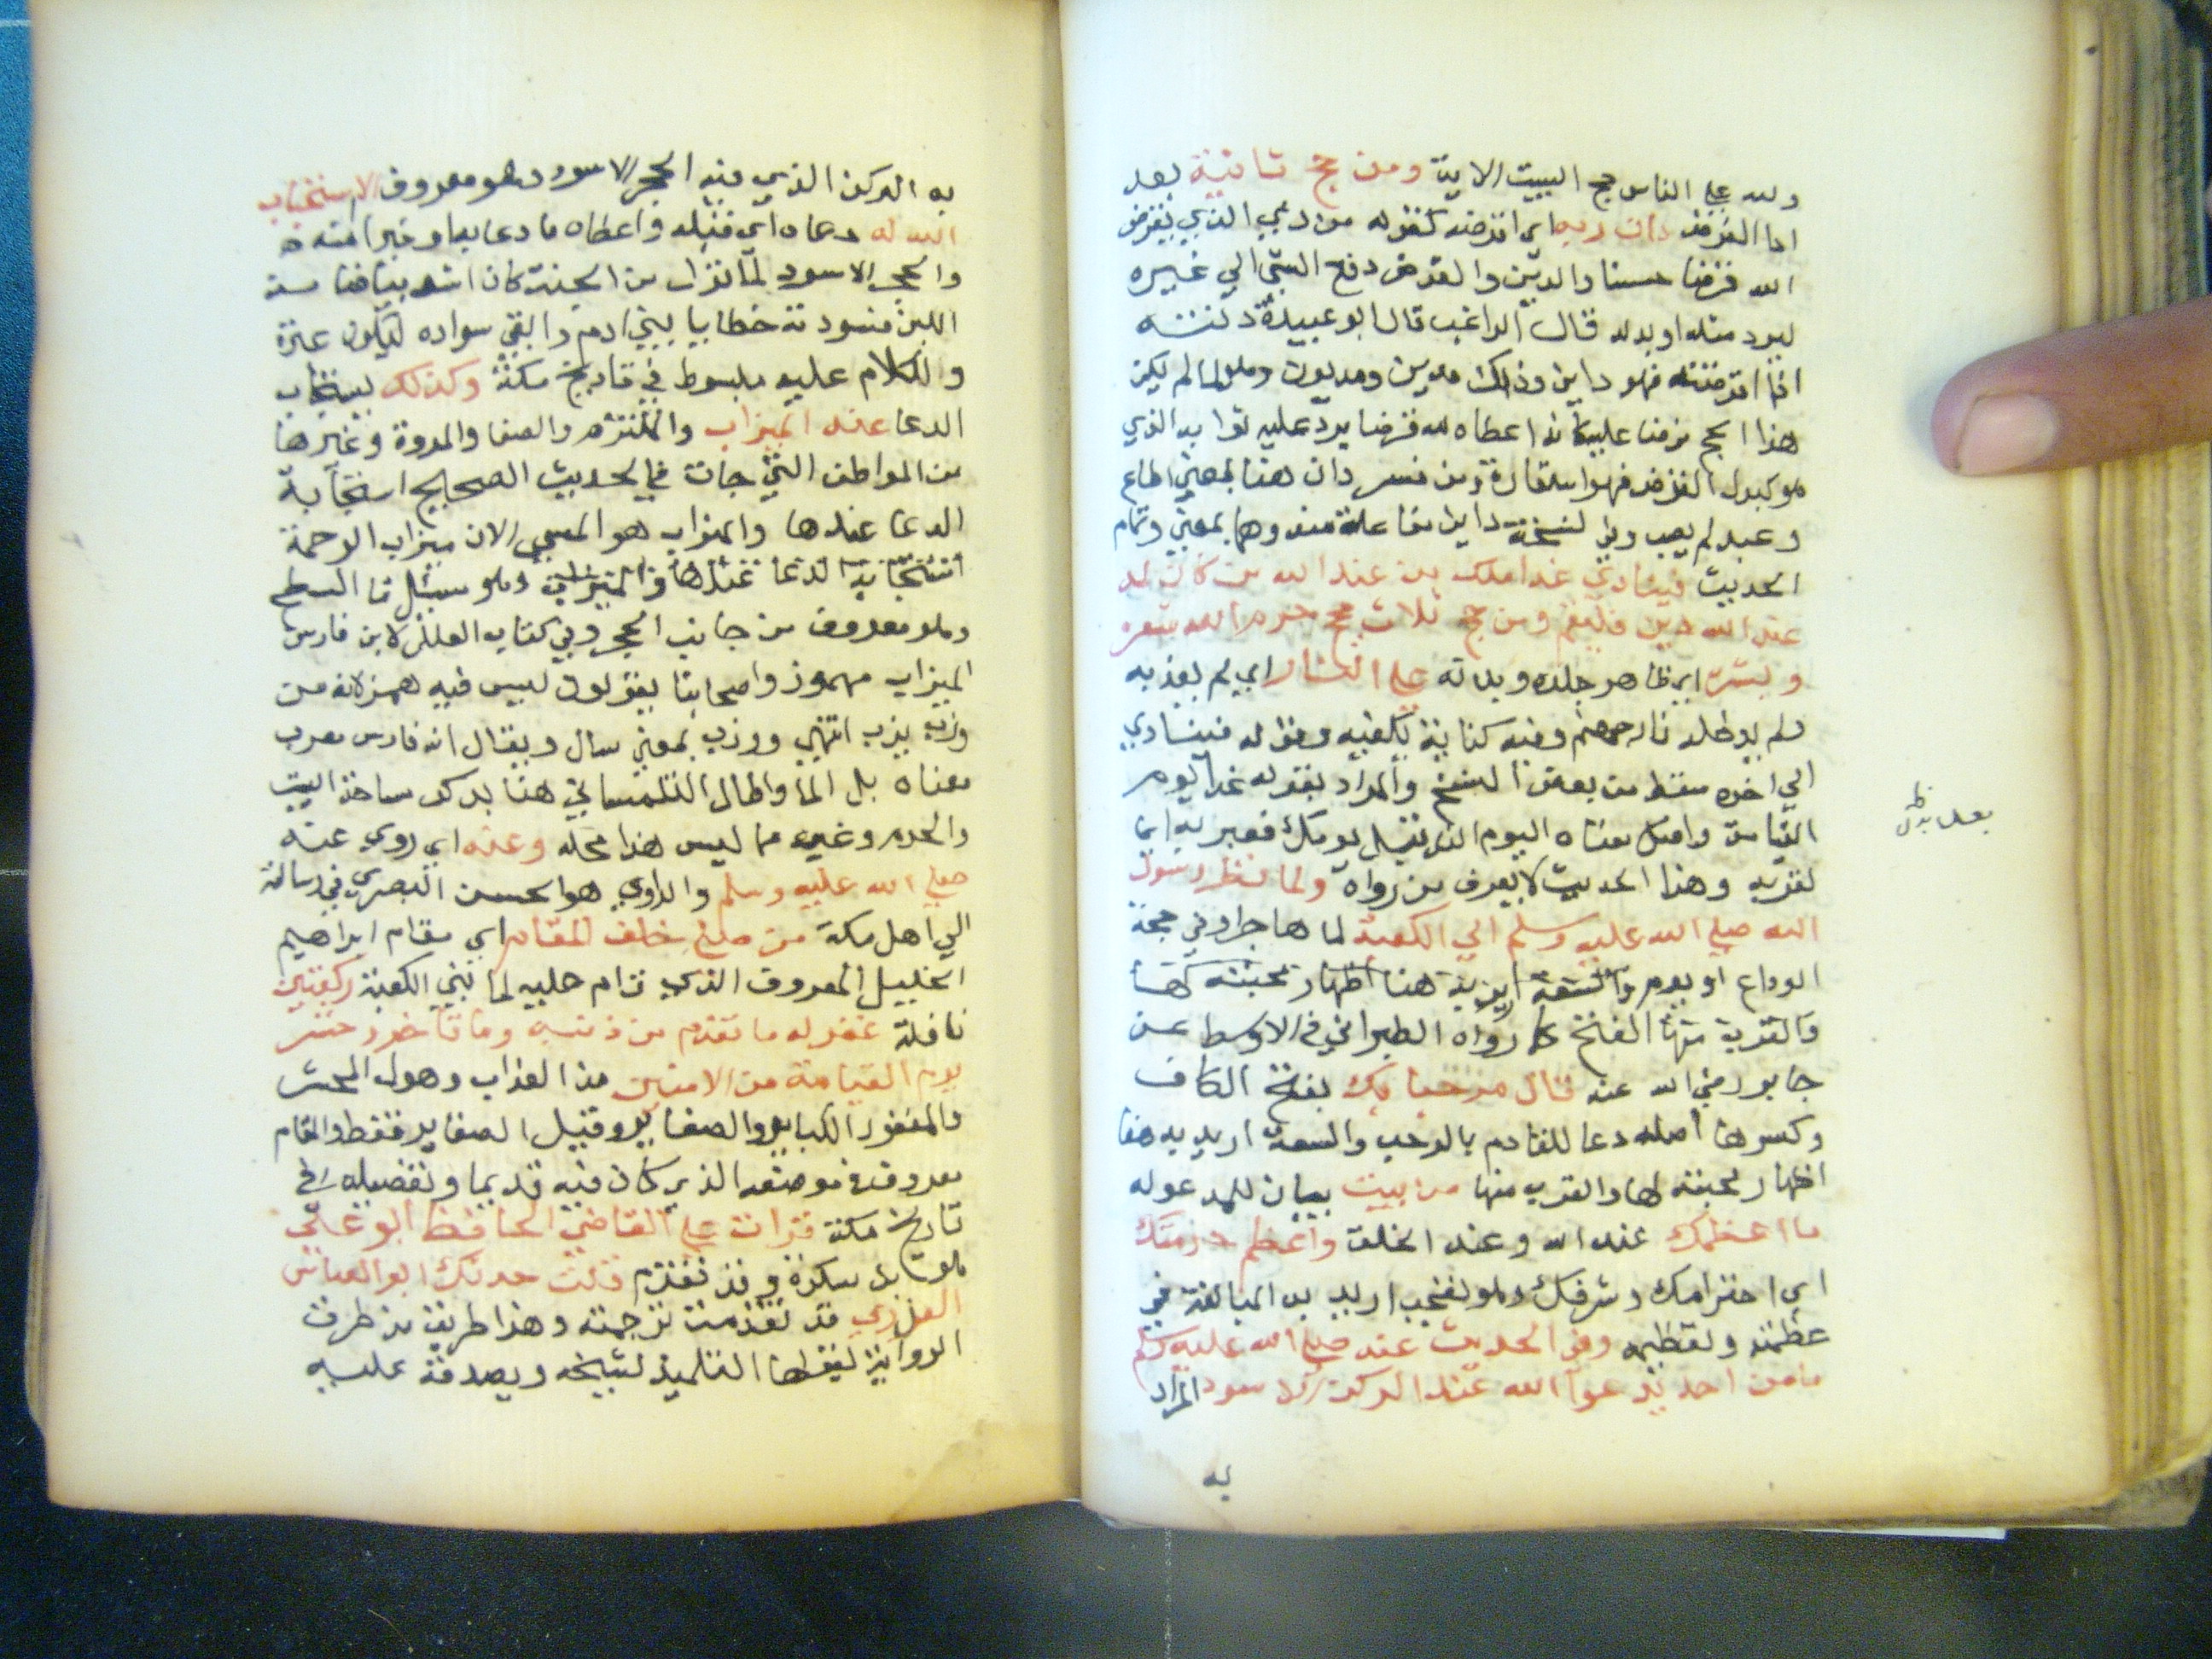 ولله علي الناس حج البيت الاية ومن حج ثانية بعد
ادا الفرض داين ربه اي اقرضه كقوله من ذي الذي يقرض
الله قرضا حسنا والدين والقرض دفع الشي الي غيره
ليرد مثله او بدله قال الراغب قال ابو عبيدة دنته
اذا اقرضته فهو داين وذلك مدين ومديون وهو لما لم يكن
هذا الحج فرضا عليه كانه اعطاه لله قرضا يرد عليه ثوابه الذي
هو كبدل القرض فهو استعارة ومن فسر دان هنا بمعني اطاع
وعبد لم يصب وفي نسخة داين مفاعلة منه وهما بمعني وتمام
الحديث فينادي غدا ملك من عند الله من كان له
عند الله دين فليقم ومن حج ثلاث حجج حرم الله شعره
وبشره اي ظاهر جلده وبدنه علي النار اي لم يعذبه
ولم يدخله نار جهنم وفيه كناية بكفيه وقوله فينادي
الي اخره سقط من بعض النسخ والمراد بقوله غدا يوم
القيامة واصل معناه اليوم الذي يلي يومك فعبر به ايما
لقربه وهذا الحديث لا يعرف من رواه ولما نظر رسول
الله صلي الله عليه وسلم الي الكعبة لما هاجر او في حجة
الوداع او يوم
والقرية منها الفتح كما رواه الطبراني في الاوسط عن
جابر رضي الله عنه قال مرحبا بك بفتح الكاف
وكسرها اصله دعا للقادم بالرحب والسعة اريد به هنا
اظهار محبته لها والقرب منها من بيت بيان للمدعو له
ما اعظمك عند الله وعند الخلق واعظم حرمتك
اي احترامك وشرفك وهو تعجب اريد به المبالغة في
عظمته وتعظيمه وفي الحديث عنه صلي الله عليه وسلم
ما من احد يدعو الله عند الركن الاسود المراد
به
به الركن الذي فيه الحجر الاسود وهو معروف الا استجاب
الله له دعاه اي قبله واعطاه ما دعا به او خيرا منه
والحجر الاسود لما نزل من الجنة كان اشد بياضا من
اللبن فسودته خطايا بني ادم وابقي سواده ليكون عبرة
والكلام عليه مبسوط في تاريخ مكة وكذلك يستجاب
الدعا عند الميزاب والملتزم والصفا والمروة وغيرها
من المواطن التي جات في الحديث الصحيح استجابة
الدعا عندها والميزاب هو المسمي الان ميزاب الرحمة
استجابة الدعا عندها والميزاب وهو مسيل ما السطح
وهو معروف من جانب الحجر وفي كتاب العلل لابن فارس
الميزاب مهموز واصحابنا يقولون ليس فيه همز لانه من
وزب يزب انتهي ووزب بمعني سال ويقال انه فارس معرب
معناه بل الما واطال التلمساني هنا بذكر ساحة البيت
والحرم وغيره مما ليس هذا محله وعنه اي روي عنه
صلي الله عليه وسلم والراوي هو الحسن البصري في رسالته
الي اهل مكة من صلي خلف المقام اي مقام ابراهيم
الخليل المعروف الذي قام عليه لما بني الكعبة ركعتين
نافلة غفر له ما تقدم من ذنبه وما تاخر وحشر
يوم القيامة من الامنين من العذاب وهول المحشر
والمغفور الكباير والصغاير وقيل الصغاير فقط والمقام
معروف في موضعه الذي كان فيه قديما وتفصيله في
تاريخ مكة قرات علي القاضي الحافظ ابو علي
هو ابن سكرة وقد تقدم قلت حدثك ابو العباس
العذري قد تقدمت ترجمته وهذا طريق من طرق
الرواية يقراها التلميذ لشيخه ويصدقه عليه